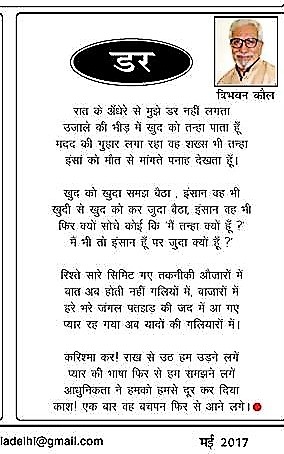 डर
त्रिभवन कौल
रात के अँधेरे से मुझे डर नहीं लगता
उजाले की भीड़ में खुद को तन्हा पाता हूँ
मदद की गुहार लगा रहा वह शख्स भी तन्हा
इंसां को मौत से मांगते पनाह देखता हूँ।
खुद को खुदा समझ बैठा , इंसान वह भी
खुदी से खुद को कर जुदा बैठा, इंसान वह भी
फिर क्यों सोचे कोई कि 'मैं तन्हा क्यों हूँ ?'
मैं भी तो इंसान हूँ पर जुदा क्यों हूँ ?'
रिश्ते सारे सिमिट गए तकनीकी औजारों में
बात अब होती नहीं गलियों में, बाजारों में
हरे भरे जंगल पतझड़ की जद में आ गए
प्यार रह गया अब यादों की गलियारों में।
करिश्मा कर! राख से उठ हम उड़ने लगें
प्यार की भाषा फिर से हम समझने लगें
आधुनिकता ने हमको हमसे दूर कर दिया
काश! एक बार वह बचपन फिर से आने लगे।
ladelhi@gmail.com
मई 2017